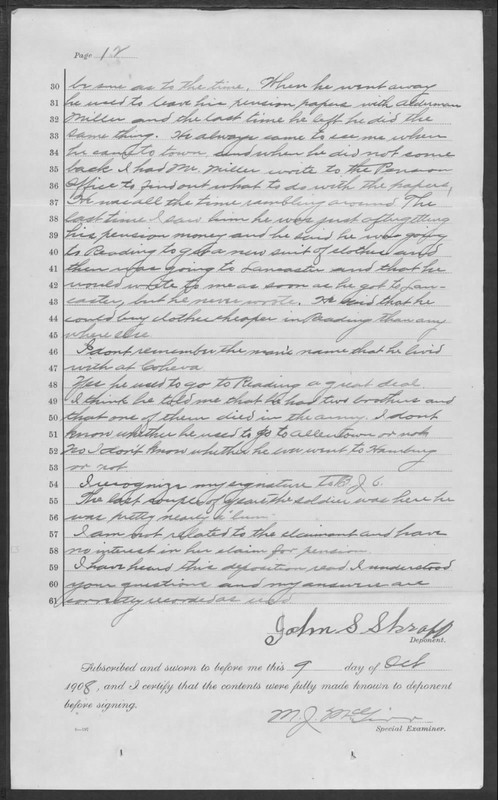 Page 18
30 be sure as to the time. When he went away
31 he used to leave his pension papers with Alderman
32 Miller and the last time he left he did the
33 same thing. He always came to see me when
34 he came to town and when he did not come
35 back I had Mr. Miller write to the Pension
36 Office to find out what to do with the papers,
37 He was all the time rambling around. The
38 last time I saw him he was just after getting
39 his pension money and he said he was going
40 to Reading to get a new suit of clothes and
41 then was going to Lancaster and that he
42 would write to me as soon as he got to Lan-
43 caster, but he never wrote. He said that he
44 could buy clothes cheaper in Reading than any
45 where else
46 I dont remember the man's name that he lived
47 with at
48 Yes he used to go to Reading a great deal
49 I think he told me that he had two brothers and
50 that one of them died in the army. I dont
51 know whether he used to go to Allentown or not
52 No I dont know whether he ever went to Hamburg
53 or not
54 I recognize my signature to B. J. C.
55 The last couple of years the soldier was here he
56 was pretty nearly a bum
57 I am not related to the claimant and have
58 no interest in her claim for pension.
59 I have heard this deposition read I understood
60 your questions and my answers are
61 correctly recorded as read
John S
Deponent.
Subscribed and sworn to before me this 9 day of Oct
1908, and I certify that the contents were fully made known to deponent
before signing.
M. J.
Special Examiner.